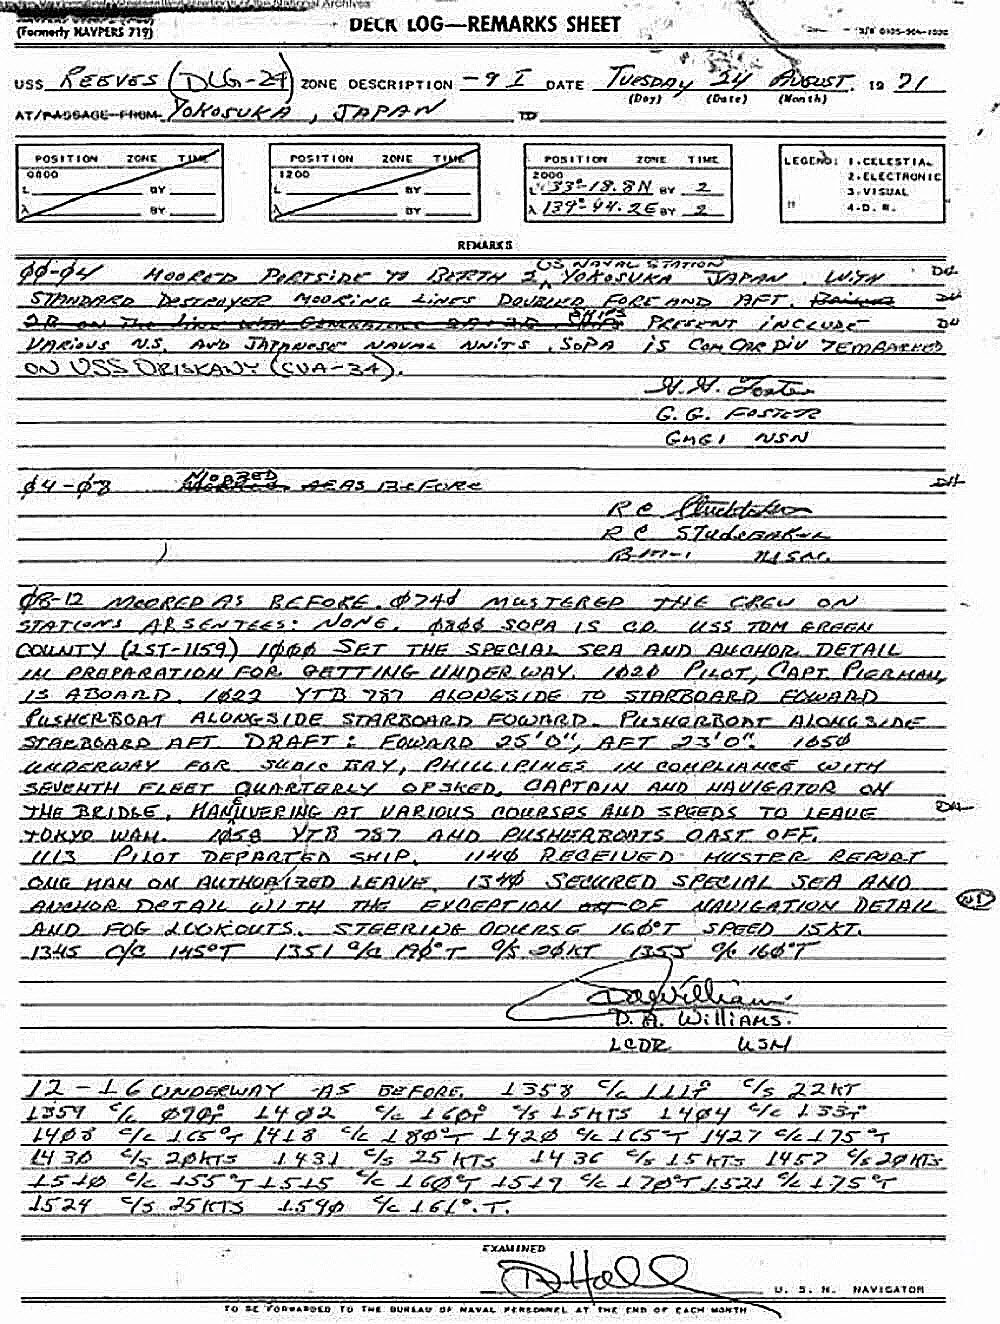 DECK LOG—REMARKS SHEET
(Formerly NAVPERS 719)
USS REEVES (DLG-24) ZONE DESCRIPTION -9 I DATE TUESDAY 24 AUGUST 19 71
(Day) (Date) (Month)
AT/PASSAGE FROM YOKOSUKA, JAPAN TO
POSITION ZONE TIME
0800
L BY
λ BY
POSITION ZONE TIME
1200
L BY
λ BY
POSITION ZONE TIME
2000
L 33°-18.8N BY 2
λ 139°-44.2E BY 2
LEGEND: 1-CELESTIAL
2-ELECTRONIC
3-VISUAL
4-D. R.
REMARKS
US NAVAL STATION
00-04 MOORED PORTSIDE TO BERTH 2, YOKOSUKA JAPAN. WITH
STANDARD DESTROYER MOORING LINES DOUBLED FORE AND AFT.
SHIPS PRESENT INCLUDE
VARIOUS U.S. AND JAPANESE NAVAL UNITS. SOPA IS COMCARDIV 7 EMBARKED
ON USS ORISKANY (CVA-34).
G. G. FOSTER
GMG1 USN
04-08 MOORED AS BEFORE
R C STUDEBAKER
08-12 MOORED AS BEFORE. 0740 MUSTERED THE CREW ON
STATIONS ABSENTEES: NONE. 0800 SOPA IS C.O. USS TOM GREEN
COUNTY (LST-1159) 1000 SET THE SPECIAL SEA AND ANCHOR DETAIL
IN PREPARATION FOR GETTING UNDERWAY. 1020 PILOT, CAPT. PIERMAN,
IS ABOARD. 1022 YTB 787 ALONGSIDE TO STARBOARD FOWARD
PUSHERBOAT ALONGSIDE STARBOARD FOWARD. PUSHERBOAT ALONGSIDE
STARBOARD AFT. DRAFT: FOWARD 25'0", AFT 23'0". 1050
UNDERWAY FOR SUBIC BAY, PHILLIPINES IN COMPLIANCE WITH
SEVENTH FLEET QUARTERLY OPSKED. CAPTAIN AND NAVIGATOR ON
THE BRIDGE, MANEUVERING AT VARIOUS COURSES AND SPEEDS TO LEAVE
TOKYO WAN. 1058 YTB 787 AND PUSHERBOATS CAST OFF.
1113 PILOT DEPARTED SHIP. 1140 RECEIVED MUSTER REPORT
ONE MAN ON AUTHORIZED LEAVE. 1340 SECURED SPECIAL SEA AND
ANCHOR DETAIL WITH THE EXCEPTION OF NAVIGATION DETAIL
AND FOG LOOKOUTS. STEERING COURSE 160°T SPEED 15KT.
1345 C/C 145°T 1351 C/C 190°T C/S 20KT 1355 C/C 160°T
D. A. WILLIAMS.
LCDR USN
12-16 UNDERWAY AS BEFORE. 1358 C/C 111° C/S 22KT
1359 C/C 090°T 1402 C/C 160° C/S 15KTS 1404 C/C 133T
1408 C/C 165°T 1418 C/C 180°T 1420 C/C 165°T 1427 C/C 175°T
1430 C/S 20KTS 1431 C/S 25 KTS 1436 C/S 15KTS 1457 C/S 20KTS
1510 C/C 155°T 1515 C/C 160°T 1519 C/C 170°T 1521 C/C 175°T
1524 C/S 25KTS 1540 C/C 161°.T.
EXAMINED
U. S. N. NAVIGATOR
TO BE FORWARDED TO THE BUREAU OF NAVAL PERSONNEL AT THE END OF EACH MONTH